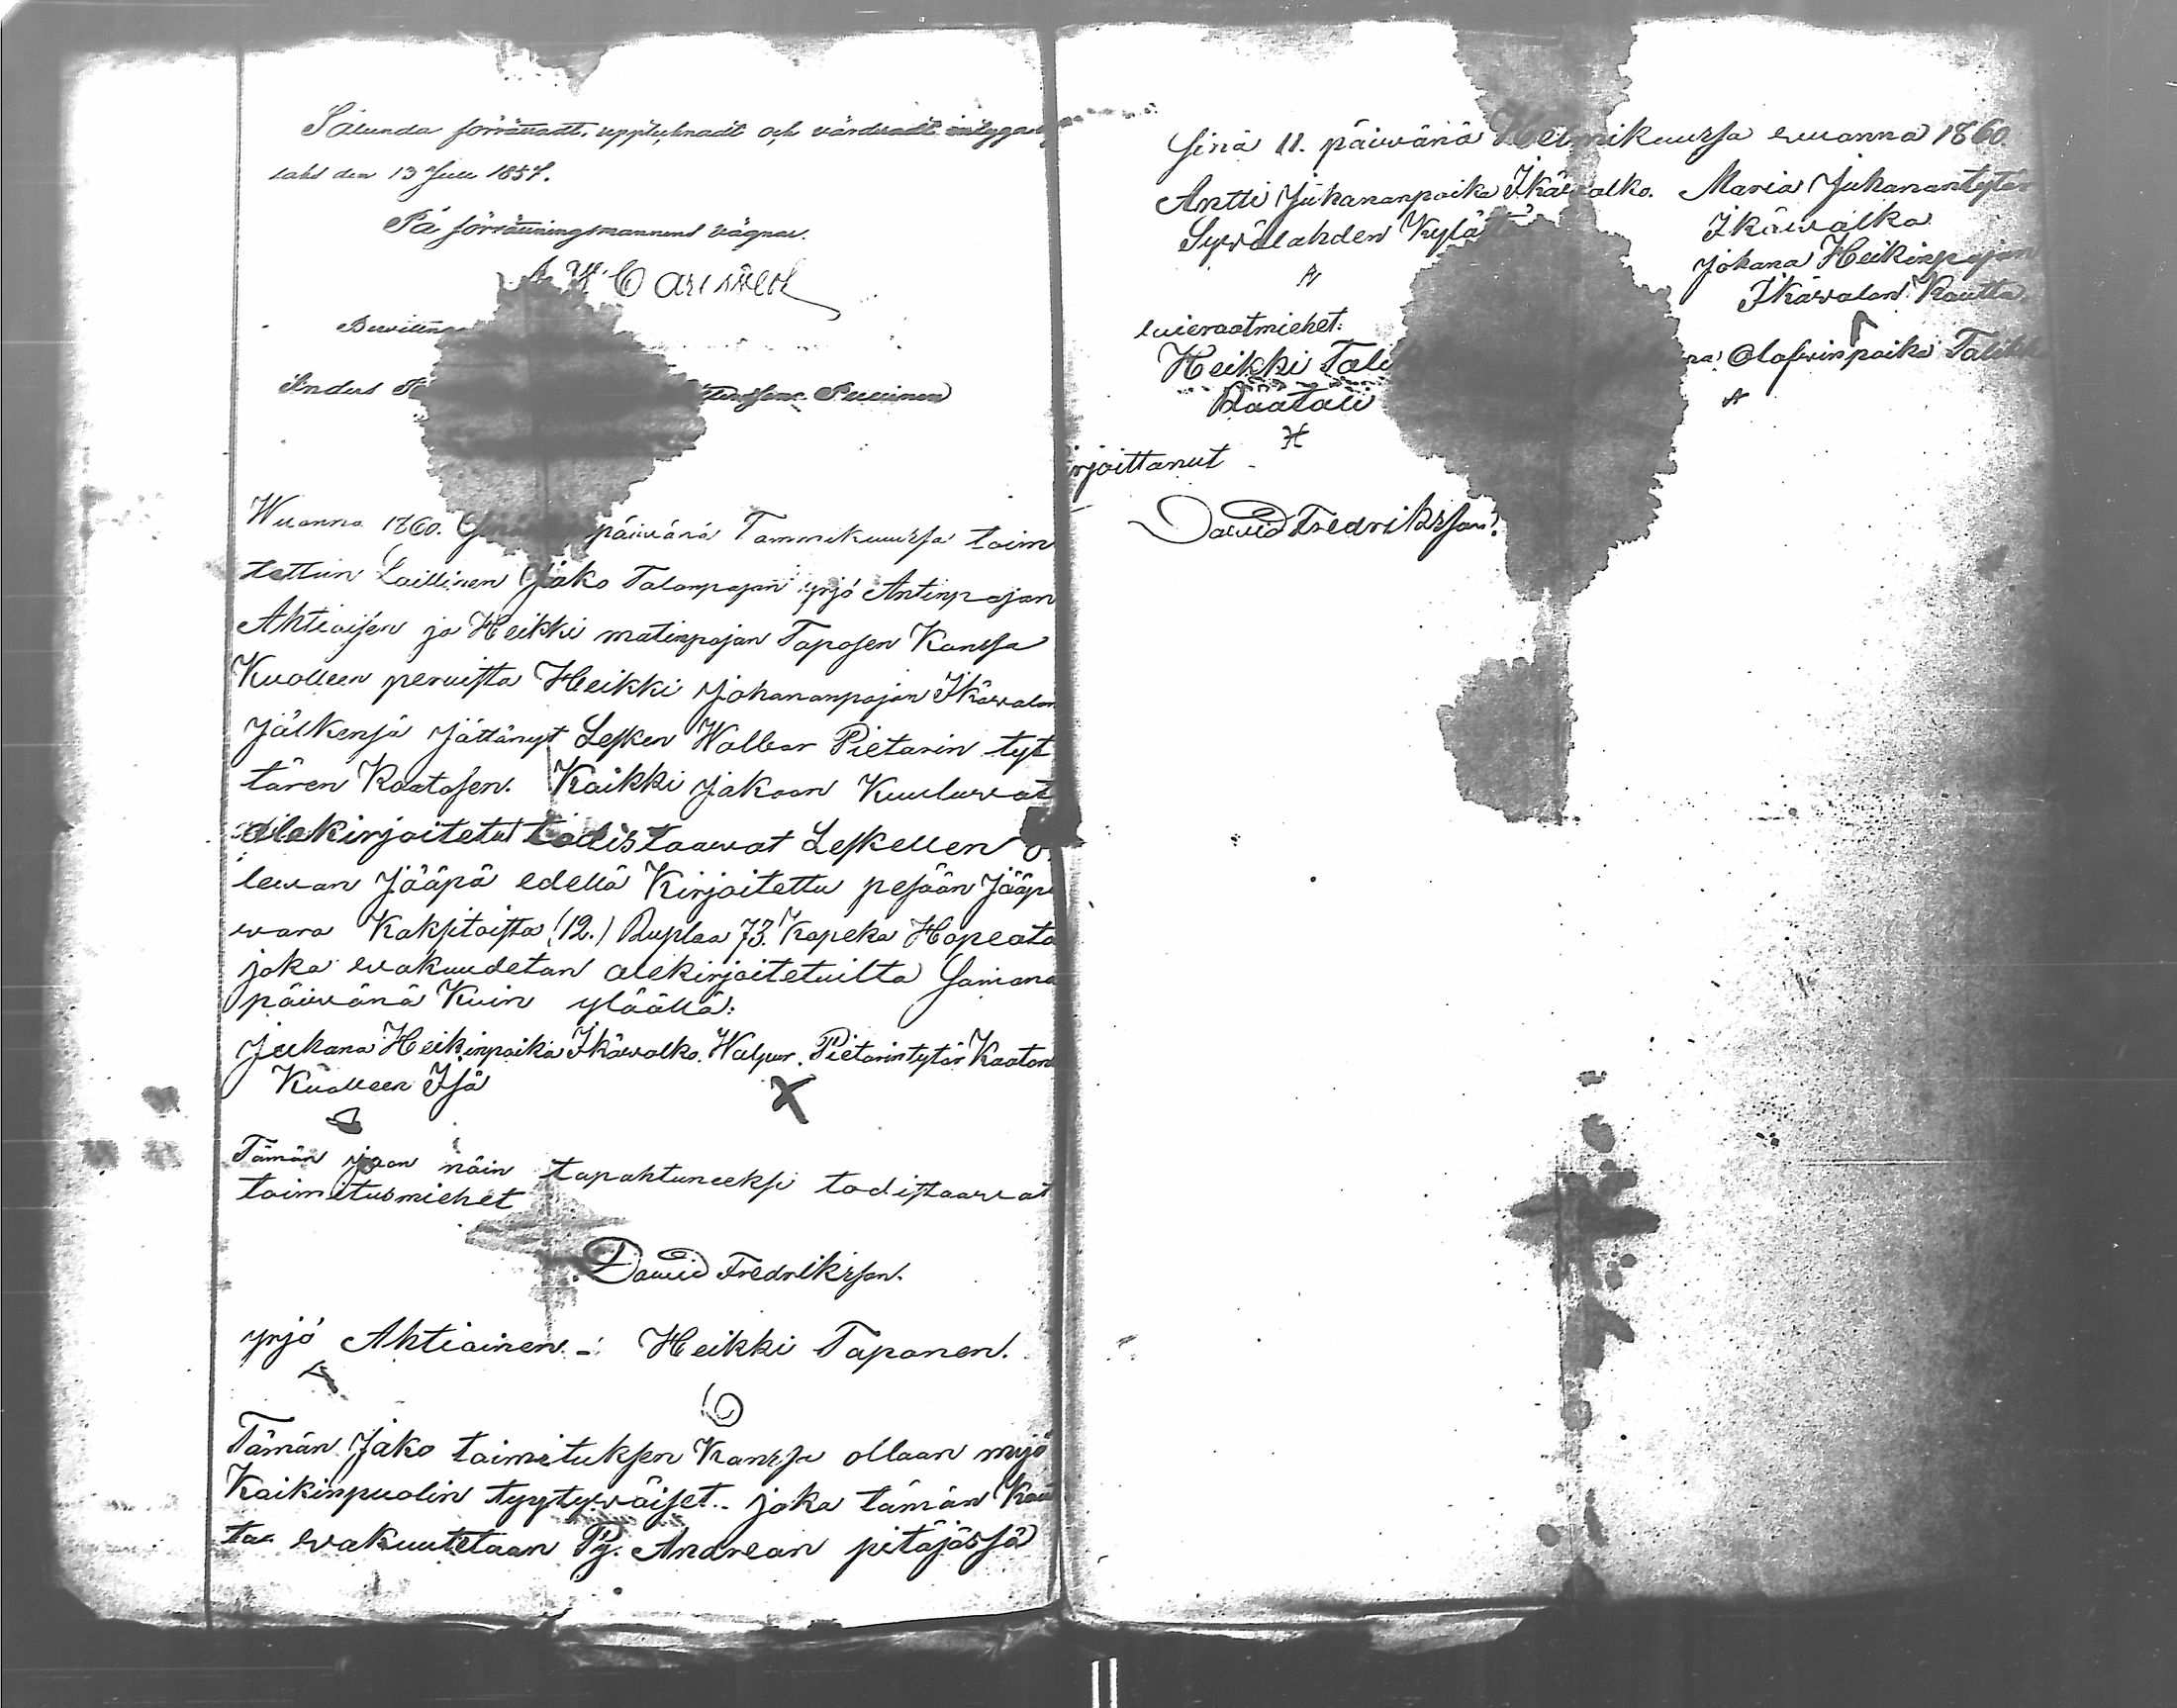 Sålunda förrättadt, upptecknadt och värderadt intyga
laht den 13 Juli 1857.
På förrättningsmannens vägnar.
Bevittna
Anders Pullinen
Wuonna 1860. päiwänä Tammikuussa toim
tettiin Laillinen Jako Talonpojan yrjö Antinpojan
Ahtiaisen ja Heikki matinpojan Taposen Kanssa
Kuolleen peruista Heikki Johananpojan Ikäwalon
Jälkensä Jättänyt Lesken Walbor Pietarin tyt
tären Kaatosen. Kaikki Jakoon Kuuluwat
allekirjoitetut todistaawat Leskellen o
lewan Jääpä edellä Kirjoitettu pesään Jääpi
wara Kaksitoista (12.) Ruplaa 73. Kopeka Hopeata
joka wakuudetan allekirjoitetuilta Samana
päiwänä Kuin yläällä:
Juhana Heikinpoika Ikäwalko. Walpur. Pietarintytär Kaaton
Kuolleen Isä
X
Tämän jaon näin tapahtuneeksi todistaawat
toimitusmiehet
Dawid Fredriksson.
yrjö Ahtiainen. Heikki Taponen.
Tämän Jako toimituksen Kanssa ollaan myö
Kaikinpuolin tyytywäiset. joka tämän Kau
ta wakuutetaan Py. Andrean pitäjässä
Sinä 11. päiwänä Helmikuussa wuonna 1860.
Antti Juhananpoika Ikäwalko. Maria Juhanantytär
Sywälahden Kylästä Ikäwalko
Johana Heikinpojan
Ikäwalon Kautta
wierasmiehet:
Heikki Tali Olofwinpoika Talikk
Räätäli
H
irjoittanut
Dawid Fredriksson.